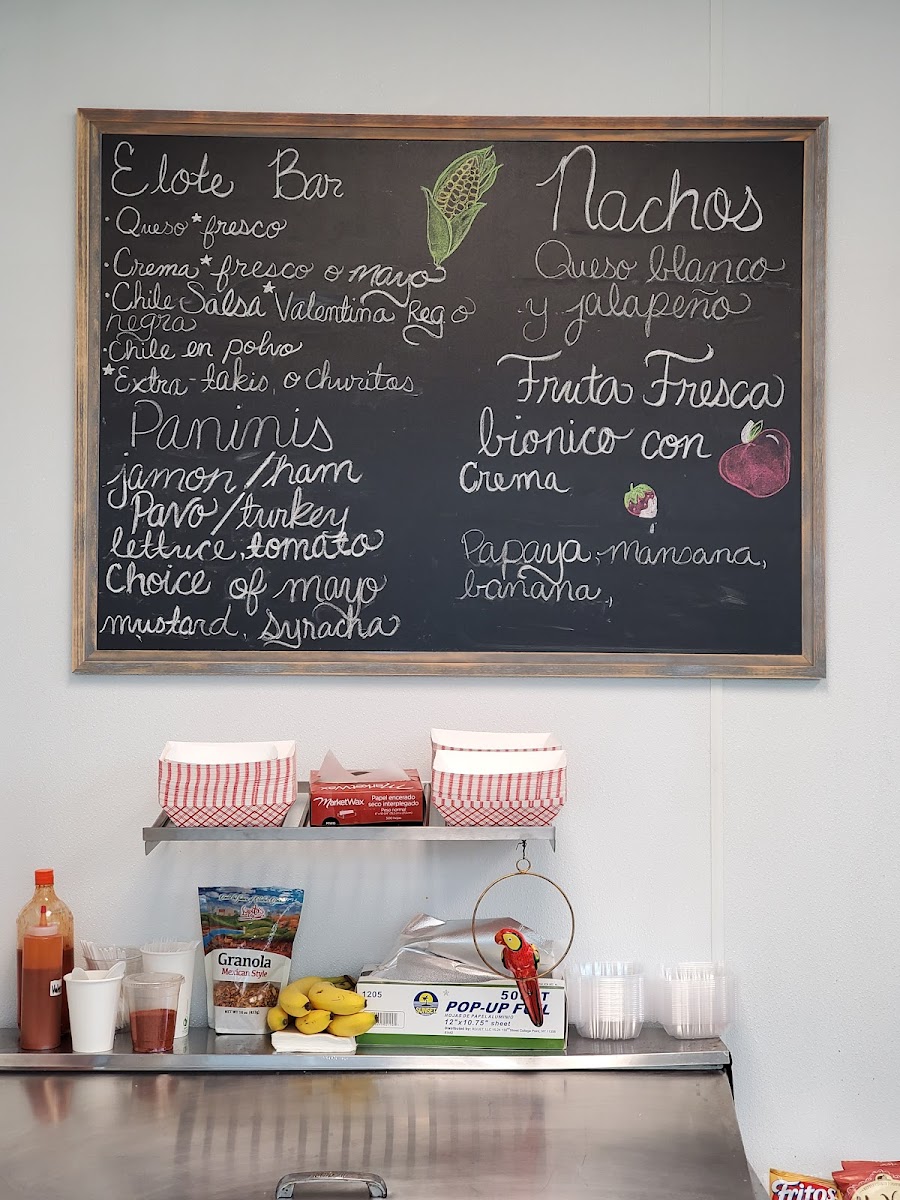 Elote Bar
·Queso*fresco
·Crema*fresco o mayo
·Chile-Salsa*Valentina Reg. o
negra
·Chile en polvo
*Extra-takis, o churitos
Paninis
jamon/ham
Pavo/turkey
lettuce, tomato
Choice of mayo
mustard, Syracha
Nachos
Queso blanco
y jalapeño
Fruta Fresca
bionico con
Crema
Papaya, mansana,
banana,
MarketWax
Papel encerado
seco interplegado
Peso normal
Granola
Mexican Style
1205
POP-UP FOIL
HOJAS DE PAPEL ALUMINIO
12"x10.75" sheet
Fritos